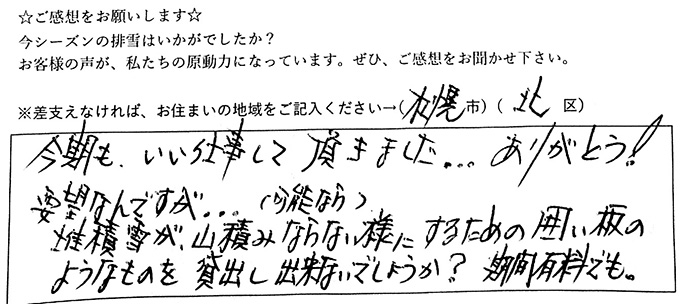 ☆ご感想をお願いします☆
今シーズンの排雪はいかがでしたか？
お客様の声が、私たちの原動力になっています。ぜひ、ご感想をお聞かせ下さい。
※差支えなければ、お住まいの地域をご記入ください→(札幌市)(北区)
今期も、いい仕事して頂きました... ありがとう！
要望なんですが...(可能なら)
堆積雪が、山積みならない様にするための囲い板の
ようなものを貸出し出来ないでしょうか？期間有料でも。